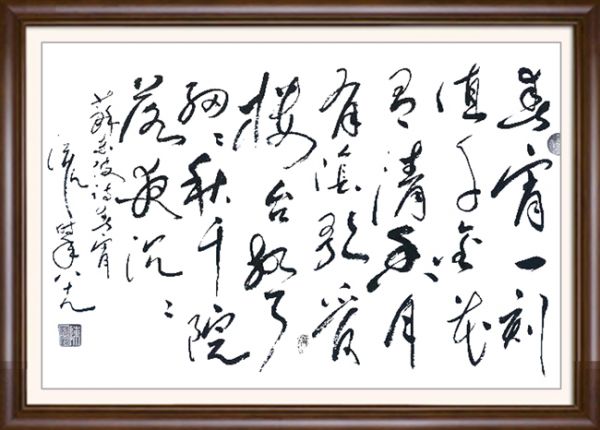 春宵一刻
值千金花
有清香月
有陰歌管
楼台聲
細〻秋千院
落夜沉〻
蘇东坡诗春宵
时年八十九